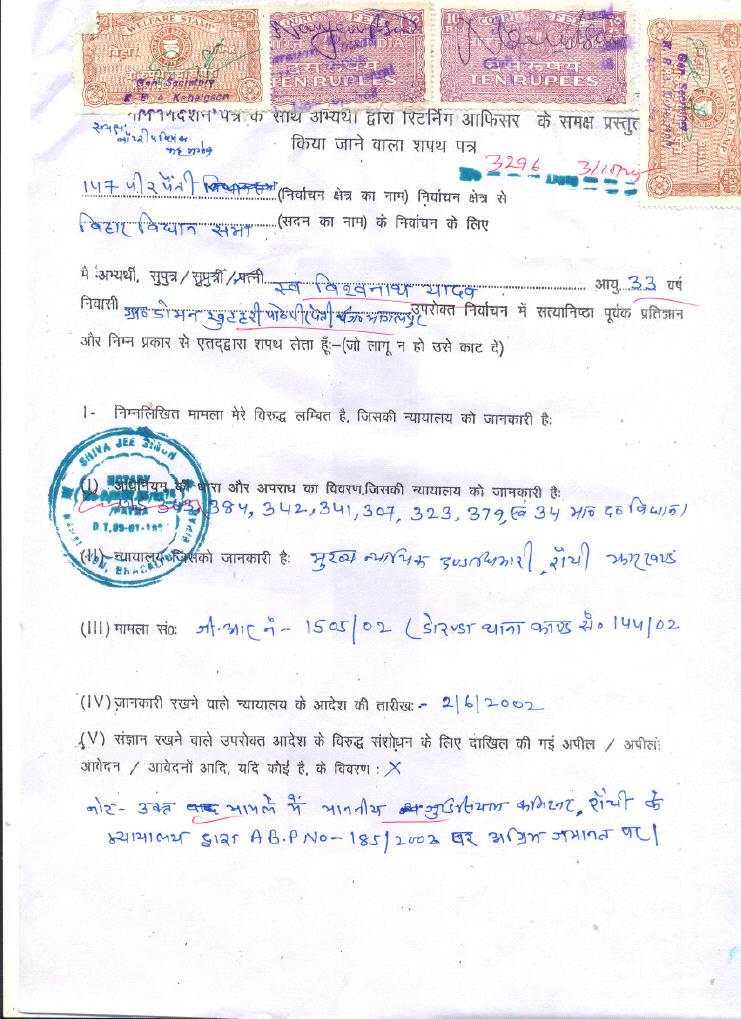 WELFARE STAMP
बिहार
Gen. Secretary
K. B. A. Kahalgaon
COURT FEE
INDIA
दस रूपये
TEN RUPEES
COURT FEE
दस रूपये
TEN RUPEES
WELFARE STAMP
Gen. Secretary
पत्र के साथ अभ्यर्थी द्वारा रिटर्निंग आफिसर के समक्ष प्रस्तुत
किया जाने वाला शपथ पत्र
3296
147 पीरपैंती (निर्वाचन क्षेत्र का नाम) निर्वाचन क्षेत्र से
बिहार विधान सभा (सदन का नाम) के निर्वाचन के लिए
मै अभ्यर्थी, सुपुत्र/सुपुत्री/पत्नी स्व विश्वनाथ यादव आयु 33 वर्ष
निवासी उपरोक्त निर्वाचन में सत्यानिष्ठा पूर्वक प्रतिज्ञान
और निम्न प्रकार से एतद्द्वारा शपथ लेता हूँ:-(जो लागू न हो उसे काट दे)
1- निम्नलिखित मामला मेरे विरुद्ध लम्बित है, जिसकी न्यायालय को जानकारी है:
SHIVA JEE SINGH
NOTARY
BHAGALPUR
(I) अधिनियम की धारा और अपराध का विवरण,जिसकी न्यायालय को जानकारी है:
384, 342, 341, 307, 323, 379, एवं 34 भा० द० विधान)
(II) न्यायालय जिसको जानकारी है: मुख्य न्यायिक दण्डाधिकारी, राँची झारखण्ड
(III) मामला सं०: जी.आर नं - 1505/02 (डोरण्डा थाना काण्ड सं० 144/02
(IV) जानकारी रखने वाले न्यायालय के आदेश की तारीख:- 2/6/2002
(V) संज्ञान रखने वाले उपरोक्त आदेश के विरुद्ध संशोधन के लिए दाखिल की गई अपील / अपीलों
आवेदन / आवेदनों आदि, यदि कोई है, के विवरण : X
नोट- उक्त मामले में माननीय जुडिसियल कमिश्नर, राँची के
न्यायालय द्वारा A.B.P No- 185/2003 पर अग्रिम जमानत पर।